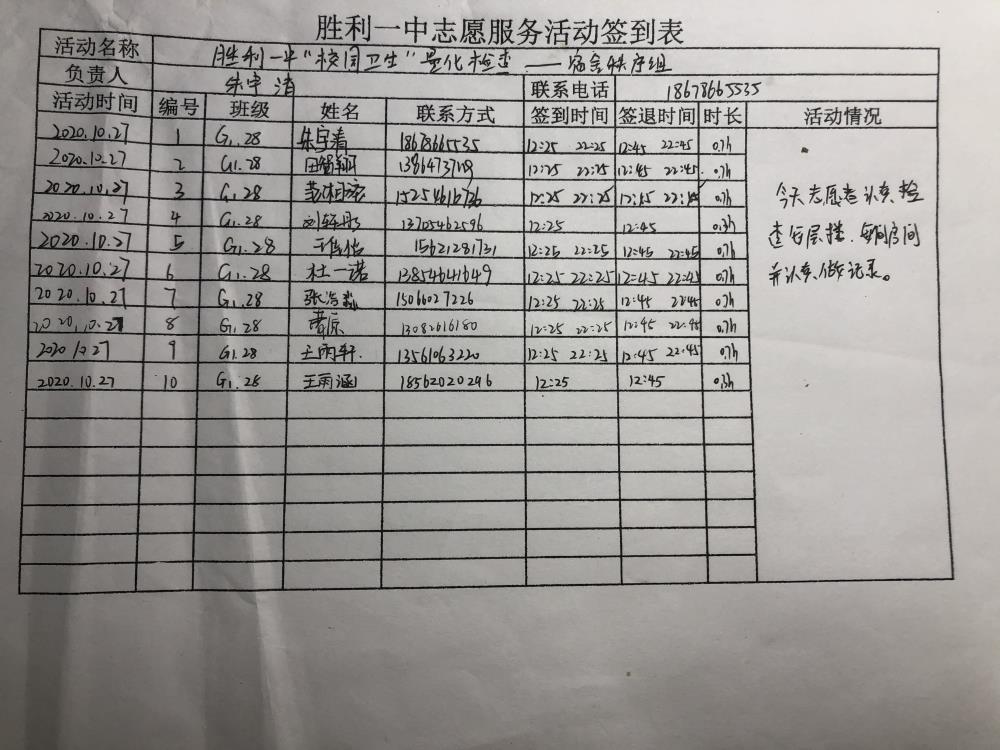 胜利一中志愿服务活动签到表
活动名称 胜利一中"校园卫生"量化检查——宿舍秩序组
负责人 朱宇清 联系电话 18678665535
活动时间 编号 班级 姓名 联系方式 签到时间 签退时间 时长 活动情况
2020.10.27 1 G1.28 朱宇清 18678665535 12:25 22:25 12:45 22:45 0.7h
2020.10.27 2 G1.28 12:25 22:25 12:45 22:45 0.7h
2020.10.27 3 G1.28 15254616736 12:25 22:25 12:45 22:45 0.7h
2020.10.27 4 G1.28 13705462596 12:25 12:45 0.3h
2020.10.27 5 G1.28 15621281731 12:25 22:25 12:45 22:45 0.7h
2020.10.27 6 G1.28 杜一诺 13854641649 12:25 22:25 12:45 22:45 0.7h
2020.10.27 7 G1.28 张浩淼 15066027226 12:25 22:25 12:45 22:45 0.7h
2020.10.27 8 G1.28 13082616180 12:25 22:25 12:45 22:45 0.7h
2020.10.27 9 G1.28 王雨轩 13561063220 12:25 22:25 12:45 22:45 0.7h
2020.10.27 10 G1.28 王雨涵 18562020296 12:25 12:45 0.3h
今天志愿者认真检
查每层楼.每间房间
并认真做记录。